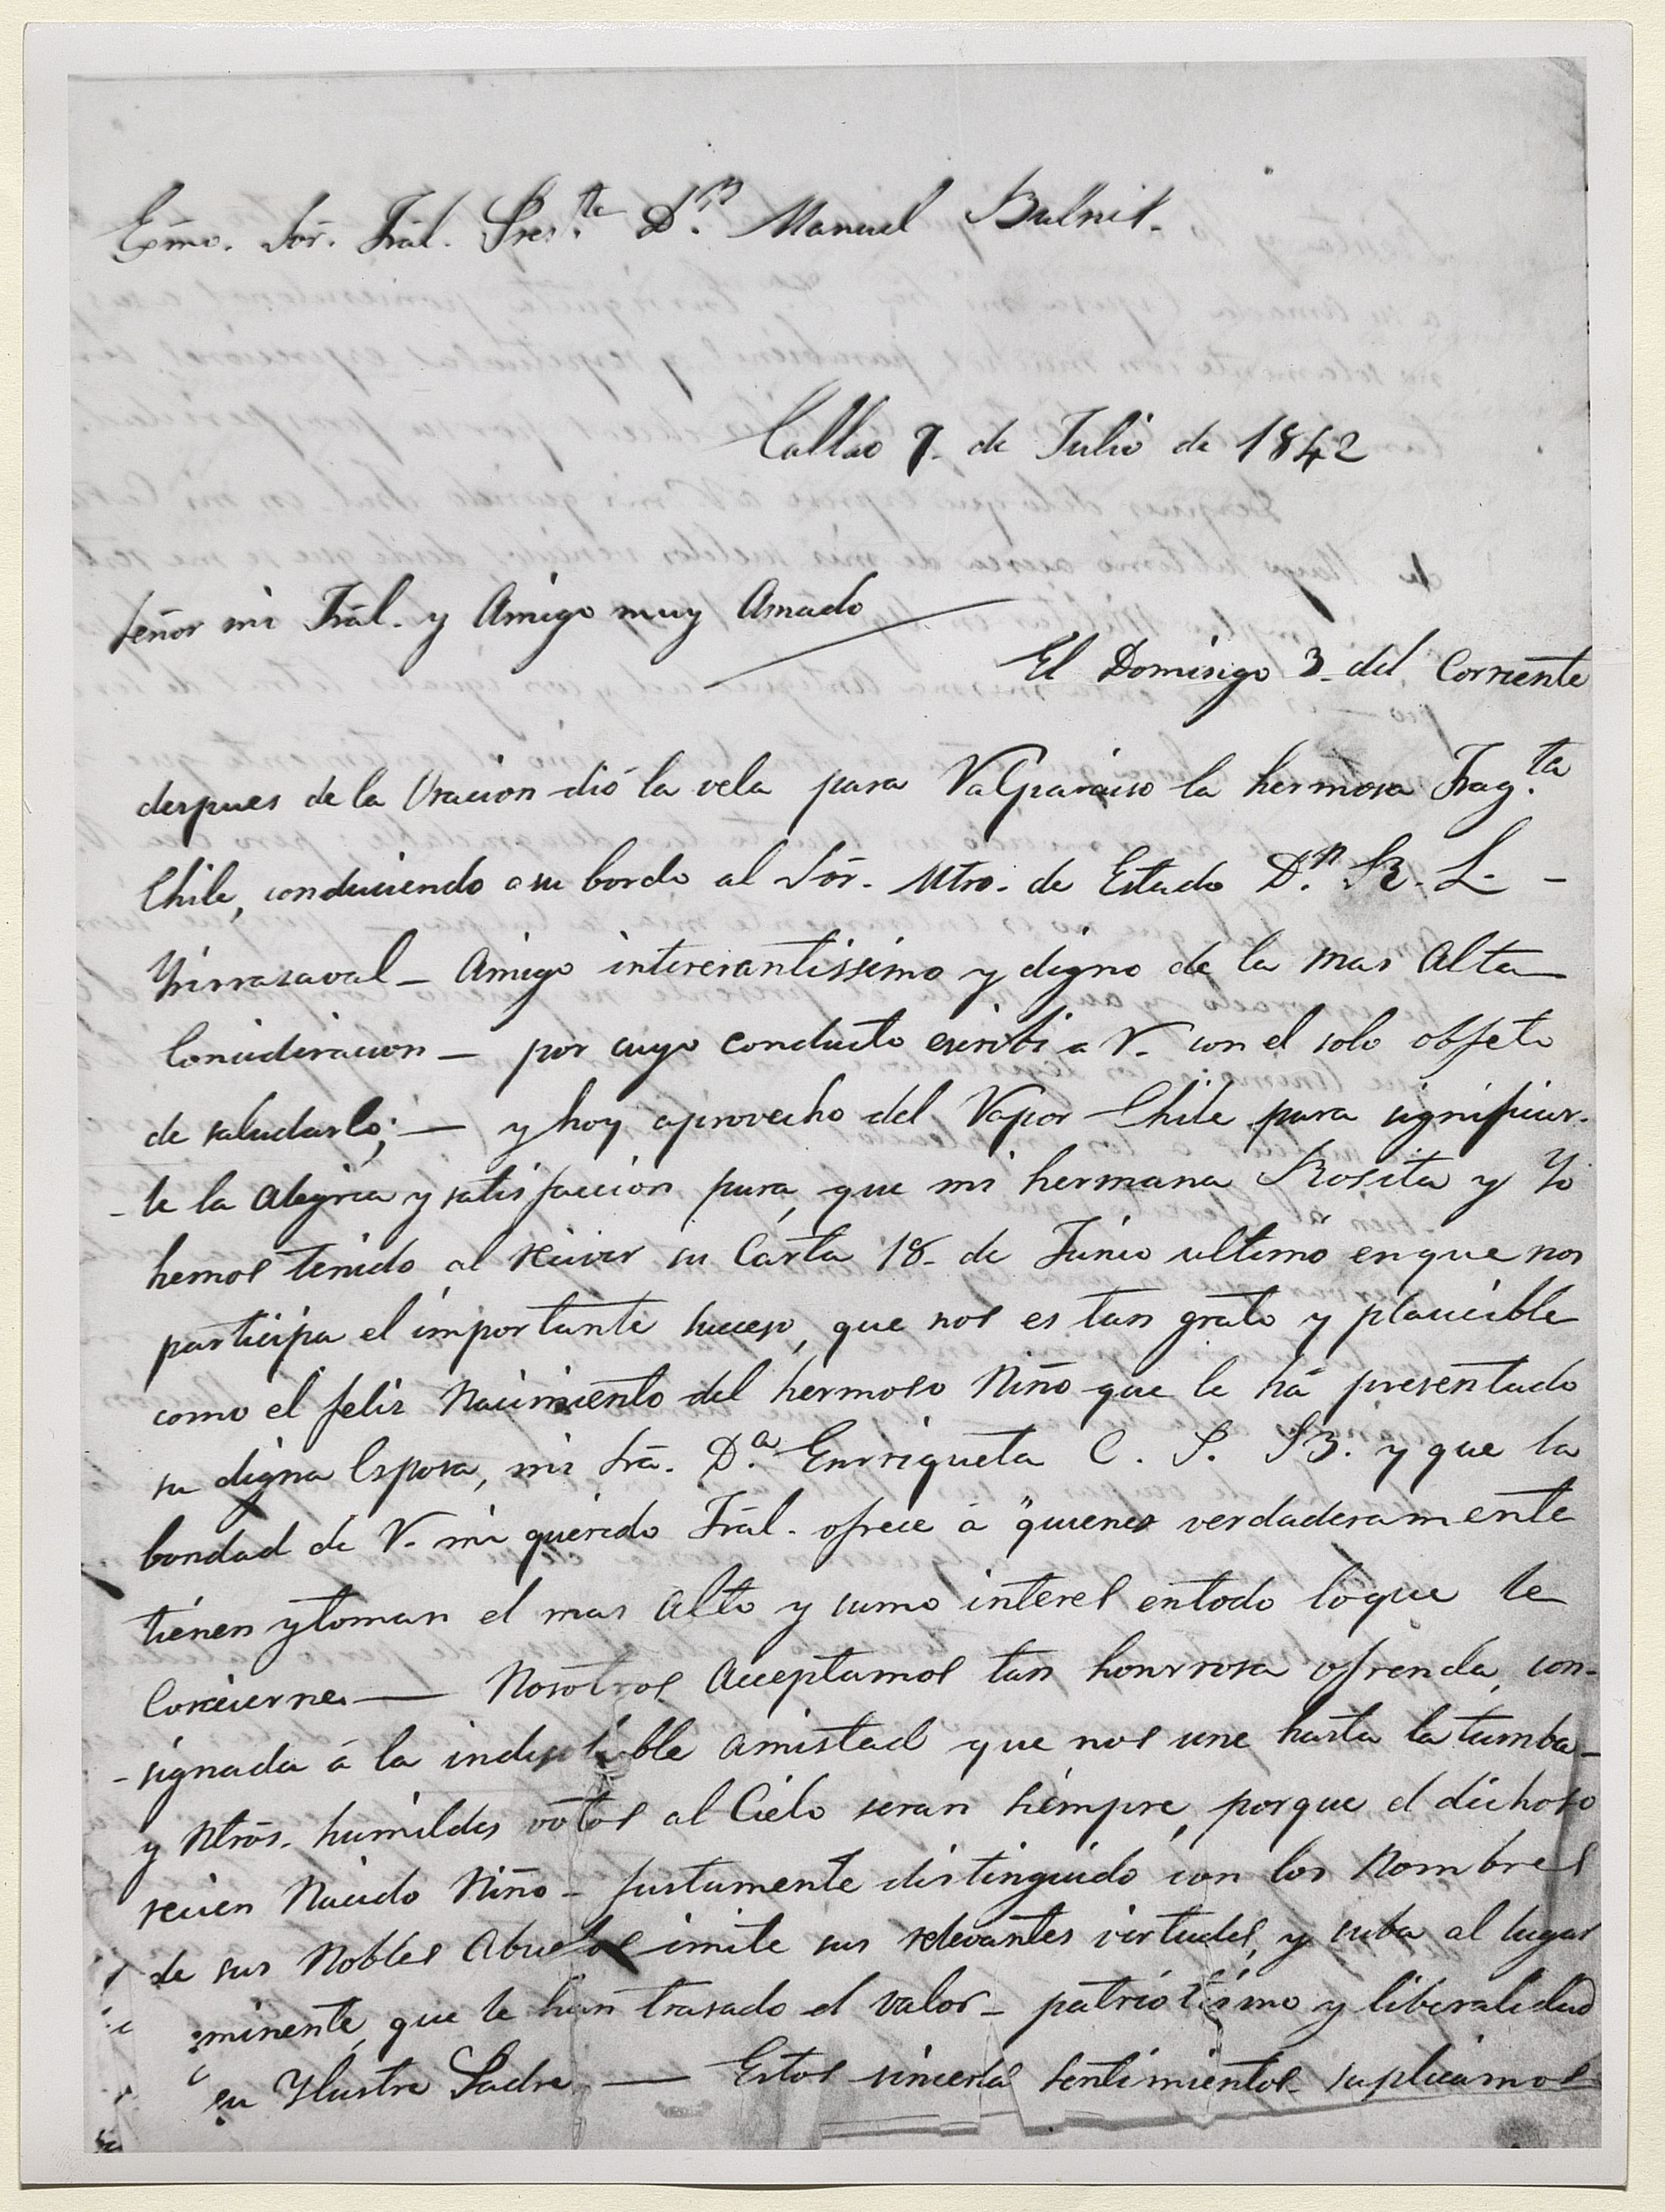 Exmo. Sōr. Grāl. Pres.te D.n Manuel Bulnes.
Callao 9. de Julio de 1842
Señor mi Grāl. y Amigo muy Amado
El Domingo 3- del Corriente
despues de la Oracion dió la vela para Valparaiso la hermosa Frag.ta
Chile, conduciendo a su bordo al Sōr. Mtro. de Estado D.n R. L. -
Yrrarasaval - Amigo interezantissimo y digno de la mas Alta
Concideracion - por cuyo conducto escribi a V. con el solo objeto
de saludarlo; - y hoy aprovecho del Vapor Chile para significar-
- le la Alegria y satisfaccion pura, que mi hermana Rosita y Yo
hemos tenido al recivir su Carta 18- de Junio ultimo en que nos
participa el importante suceso, que nos es tan grato y plaucible
como el felis Nacimiento del hermoso Niño que le há presentado
su digna Esposa, mi Srā. D.a Enrriqueta C. P. B. y que la
bondad de V. mi querido Grāl. ofrece á quienes verdaderamente
tienen y toman el mas Alto y sumo interes entodo loque le
Concierne. - Nosotros Acceptamos tan honrrosa ofrenda, con-
- signada á la indisoluble amistad que nos une hasta la tumba -
y Ntrōs. humildes votos al Cielo seran siempre, porque el dichoso
recien Nacido Niño - justamente distinguido con los Nombres
de sus Nobles Abuelos imite sus relevantes virtudes, y suba al lugar
eminente, que le han trasado el valor - patriotismo y liberalidad
su Ylustre Padre - Estos sinceros sentimientos suplicamos